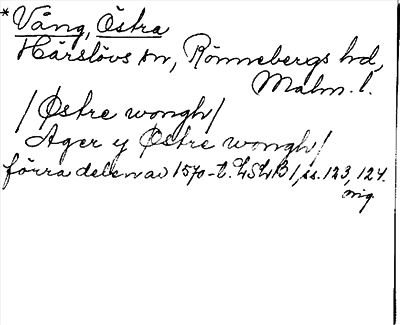 * Vång, Östra
Härslövs sn, Rönnebergs hd,
Malm. l.
/Østre wongh/
Ager y Østre wongh/
förra delen av 1570-t. LSLB 1, ss. 123, 124.
orig.